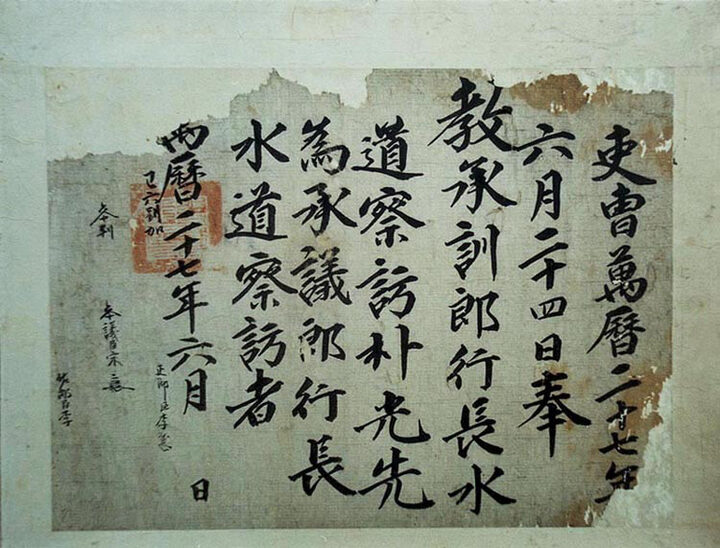 吏曹萬曆二十七年
六月二十四日奉
教承訓郎行長水
道察訪朴光先
為承議郎行長
水道察訪者
萬曆二十七年六月 日